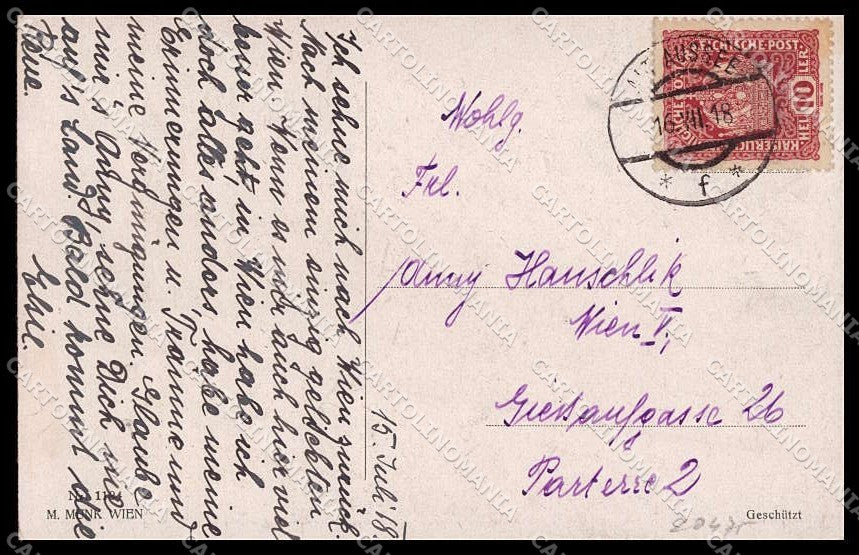 Ich sehne mich nach Wien zurück.
Nach meinem einzig geliebten
Wien. Wenn es mir auch hier viel
besser geht, in Wien habe ich
doch alles anders, habe meine
Erinnerungen u. Träume und
meine Vergnügungen. Glaube
mir's Anny, sehne Dich nie
auf's Land. Bald kommt die
Reue.
Elsie.
15. Juli 18.
Wohlg.
Frl.
Anny Hanschlik
Wien V,
Giessaufgasse 26
Parterre 2
AUSSEE
16 VII 18
* f *
KAISERLICHE
REICHISCHE POST
10
HELLER
No 1184
M. MUNK WIEN
Geschützt
CARTOLINOMANIA